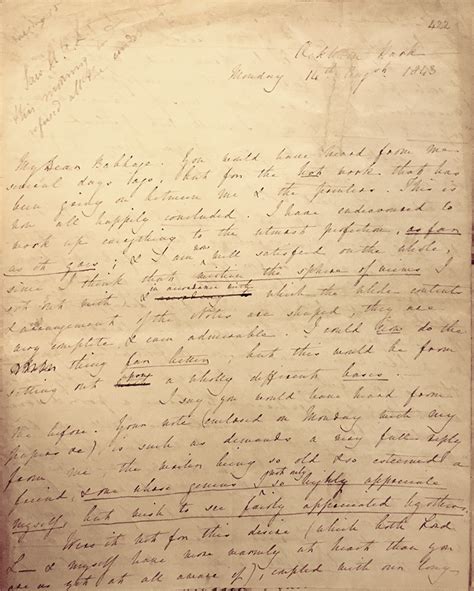 422
Tuesday 15
Saw A. A. L.
this morning &
refused all the conditions
Ockham Park
Monday 14th August 1843
My Dear Babbage. You would have heard from me
several days ago, but for the hot work that has
been going on between me & the printers. This is
now all happily concluded. I have endeavoured to
work up everything to the utmost perfection, as far
as it goes; & I am now well satisfied on the whole,
since I think that within the sphere of views I
set out with, & in accordance with which the whole contents
& arrangement of the Notes are shaped, they are
very complete, & even admirable. I could now do the
thing far better; but this would be from
setting out upon a wholly different basis.
I say you would have heard from
me before. Your note (enclosed on Monday with my
papers &c) is such as demands a very full reply
from me, the writer being so old & so esteemed a
friend, & one whose genius I not only so highly appreciate
myself, but wish to see fairly appreciated by others.
Were it not for this desire (which both Lord
L— & myself have more warmly at heart than you
are as yet at all aware of), coupled with our long